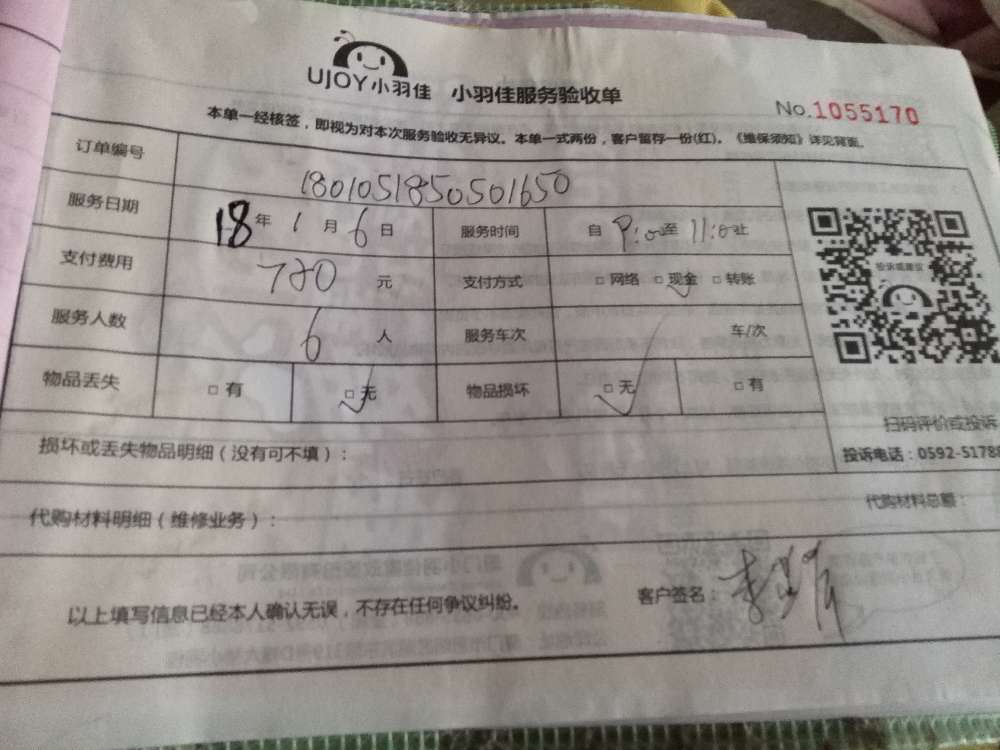 UJOY小羽佳 小羽佳服务验收单
No.1055170
本单一经核签，即视为对本次服务验收无异议。本单一式两份，客户留存一份(红)。《维保须知》详见背面。
订单编号 1801051850501650
服务日期 18年1月6日 服务时间 自9:00至11:00止
支付费用 720元 支付方式 □网络 □现金 □转账
服务人数 6人 服务车次 车/次
物品丢失 □有 □无 物品损坏 □无 □有
投诉或建议
扫码评价或投诉
投诉电话：0592-51788
损坏或丢失物品明细（没有可不填）：
代购材料明细（维修业务）：
代购材料总额：
以上填写信息已经本人确认无误，不存在任何争议纠纷。
客户签名：李